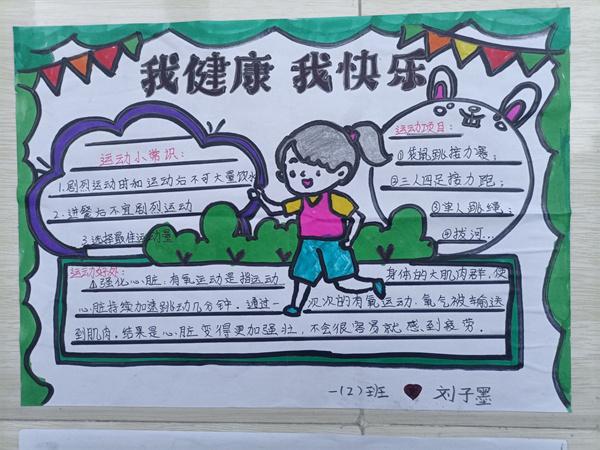 我健康 我快乐
运动小常识:
1.剧烈运动时和运动后不可大量饮水
2.进餐后不宜剧烈运动
3.选择最佳运动量
运动项目:
①袋鼠跳接力赛;
②三人四足接力跑;
③单人跳绳;
④拔河...
运动好处:
1强化心脏:有氧运动是指运动 身体的大肌肉群,使
心脏持续加速跳动几分钟.通过一 次次的有氧运动.氧气被输送
到肌肉.结果是心脏变得更加强壮,不会很容易就感到疲劳.
一(2)班 刘子墨